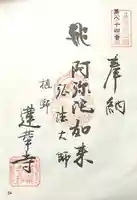 奉納
第八十四番
阿弥陀如来
弘法大師
植野
蓮華寺